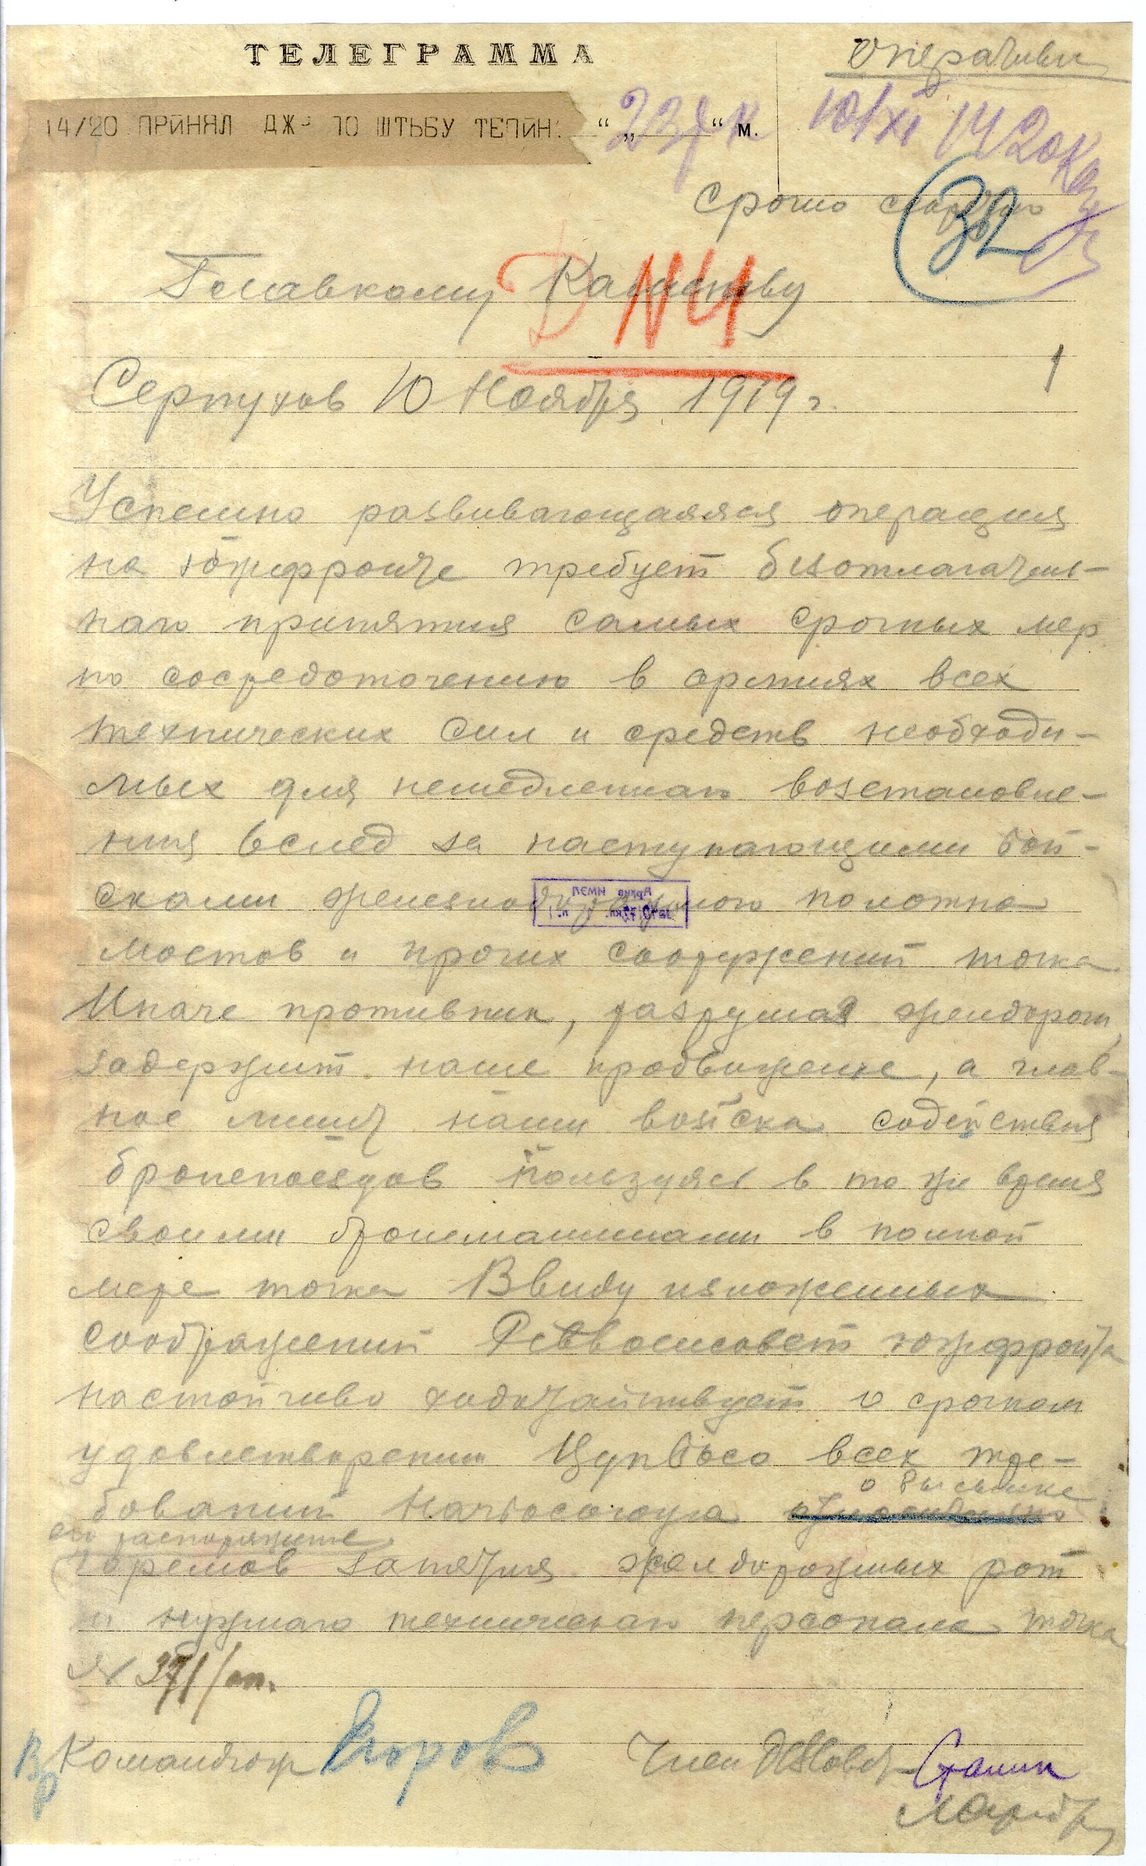 ТЕЛЕГРАММА
Оперативн
14/20 ПРИНЯЛ ДЖ- 10 ШТЬБУ ТЕПИН: " „ " м.
10/XI 14 20
Срочно
32
Главкому Каменеву
1
Серпухов 10 Ноября 1919 г.
Успешно развивающаяся операция
на южфронте требует безотлагатель-
наго принятия самых срочных мер
по сосредоточению в армиях всех
технических сил и средств необходи-
мых для немедленнаго возстановле-
ния вслед за наступающими вой-
сками железнодорожного полотна
мостов и прочих сооружений точка
Иначе противник, разрушая желдорогу,
задержит наше продвижение, а глав-
ное лишит наши войска содействия
бронепоездов пользуясь в то же время
своими бронемашинами в полной
мере точка Ввиду изложенных
соображений Реввоенсовет южфронта
настойчиво ходатайствует о срочном
удовлетворении Цупвосо всех тре-
бований Начвосоюга о высылке
его распоряжение
горемов запятая желдорожных рот
и нужнаго техническаго персонала точка
№ 371/оп.
Вр Командюж Егоров Член Сталин